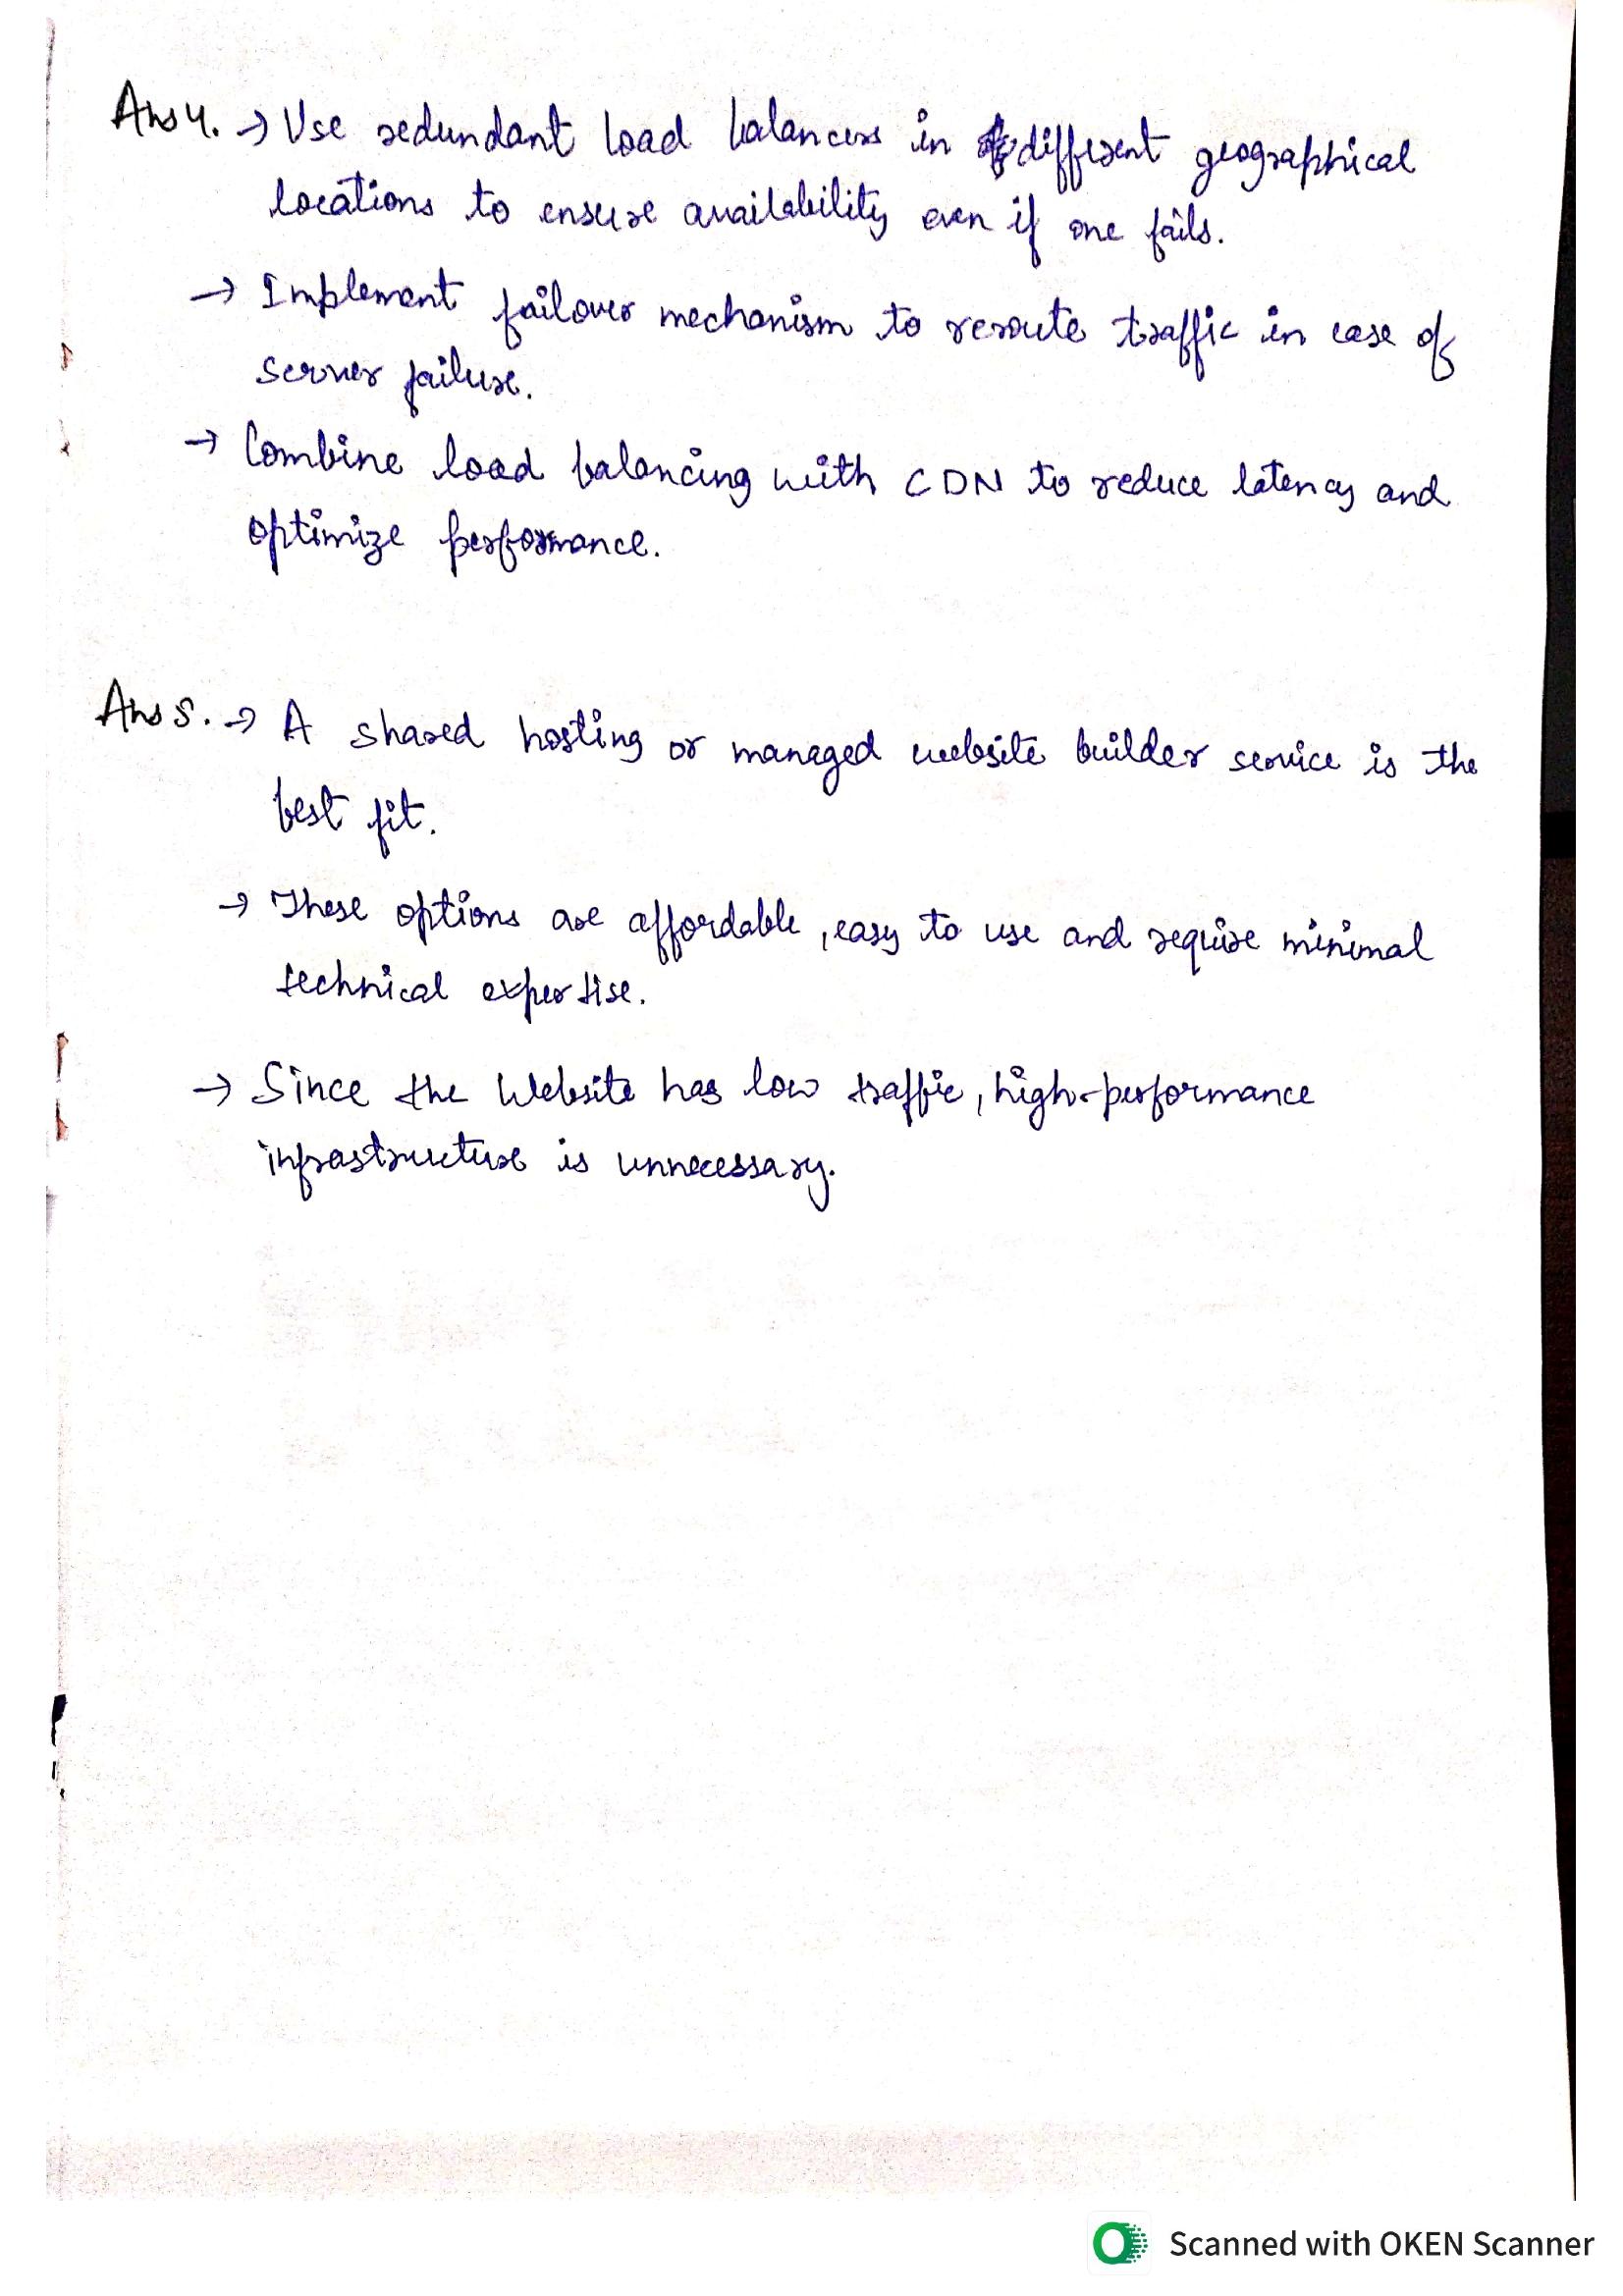 Ans 4. → Use redundant load balancers in different geographical
locations to ensure availability even if one fails.
→ Implement failover mechanism to reroute traffic in case of
server failure.
→ Combine load balancing with CDN to reduce latency and
optimize performance.
Ans 5. → A shared hosting or managed website builder service is the
best fit.
→ These options are affordable, easy to use and require minimal
technical expertise.
→ Since the Website has low traffic, high-performance
infrastructure is unnecessary.
Scanned with OKEN Scanner